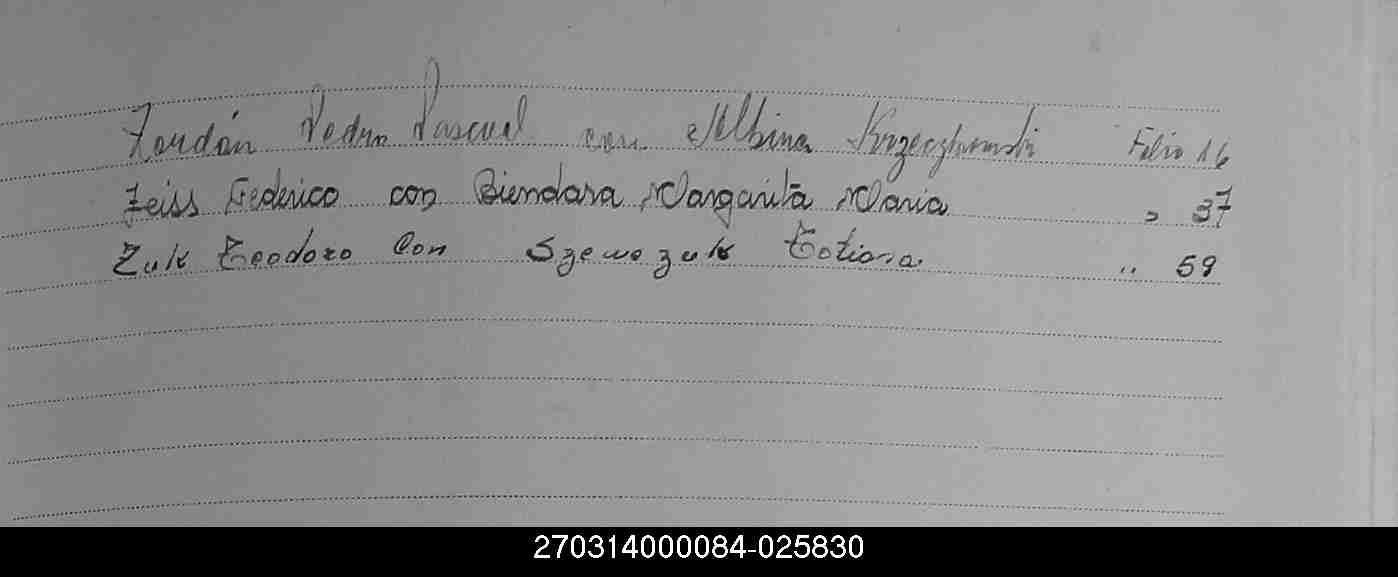 Zordán Pedro Pascual con Albina Krzeczkowski Folio 16
Zeiss Federico con Biendara Margarita Maria " 37
Zuk Teodoro Con Szewozuk Totiana " 59
270314000084-025830